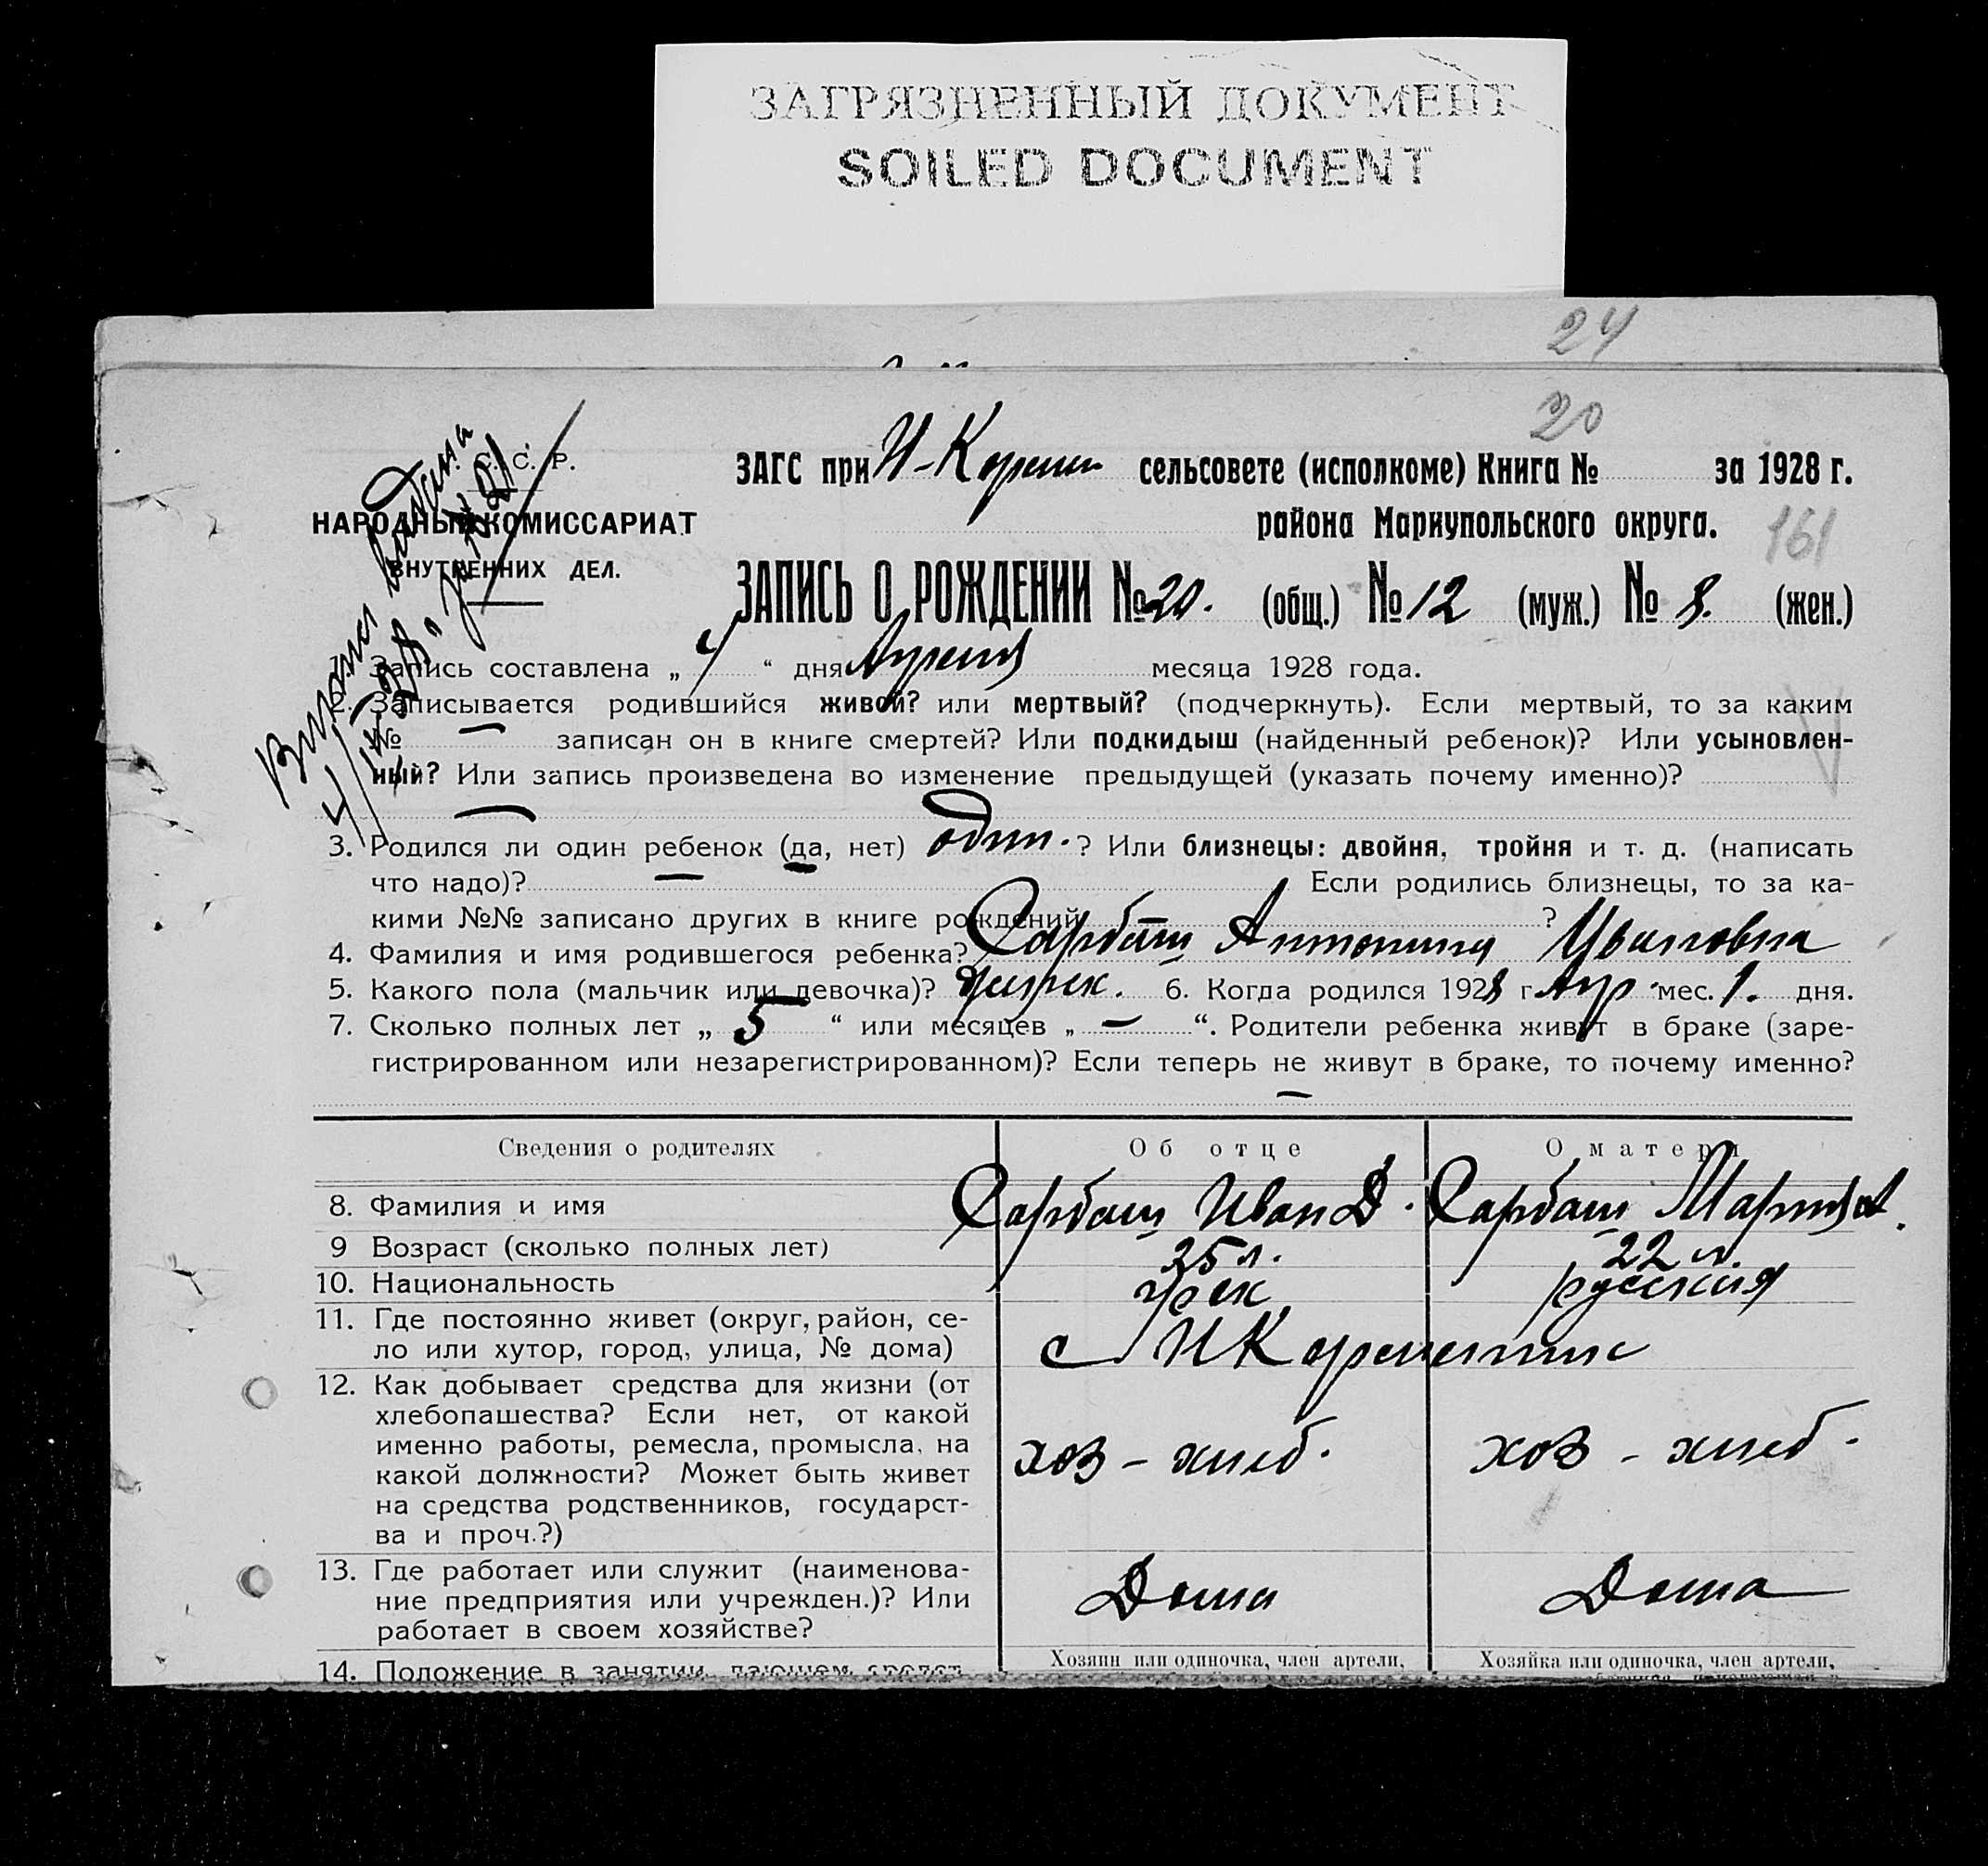 ЗАГРЯЗНЕННЫЙ ДОКУМЕНТ
SOILED DOCUMENT
24
20
С. С. Р.
НАРОДНЫЙ КОМИССАРИАТ
ВНУТРЕННИХ ДЕЛ.
ЗАГС при сельсовете (исполкоме) Книга № за 1928 г.
района Мариупольского округа.
161
ЗАПИСЬ О РОЖДЕНИИ № 20. (общ.) № 12 (муж.) № 8. (жен.)
Запись составлена „ 4 “ дня Апреля месяца 1928 года.
2. Записывается родившийся живой? или мертвый? (подчеркнуть). Если мертвый, то за каким
№ — записан он в книге смертей? Или подкидыш (найденный ребенок)? Или усыновлен-
ный? Или запись произведена во изменение предыдущей (указать почему именно)?
—
3. Родился ли один ребенок (да, нет) один. ? Или близнецы: двойня, тройня и т. д. (написать
что надо)? — Если родились близнецы, то за ка-
кими №№ записано других в книге рождений ?
4. Фамилия и имя родившегося ребенка? Сарбаш Антонина Ивановна
5. Какого пола (мальчик или девочка)? 6. Когда родился 1928 г. Апр. мес. 1. дня.
7. Сколько полных лет „ 5 “ или месяцев „ — “. Родители ребенка живут в браке (заре-
гистрированном или незарегистрированном)? Если теперь не живут в браке, то почему именно?
—
Сведения о родителях Об отце О матери
8. Фамилия и имя Сарбаш Иван Д. Сарбаш Мария
9 Возраст (сколько полных лет) 25 л. 22 л.
10. Национальность грек русская
11. Где постоянно живет (округ, район, се-
ло или хутор, город, улица, № дома)
12. Как добывает средства для жизни (от
хлебопашества? Если нет, от какой
именно работы, ремесла, промысла, на
какой должности? Может быть живет
на средства родственников, государст-
ва и проч.?)
хоз - хлеб. хоз - хлеб.
13. Где работает или служит (наименова-
ние предприятия или учрежден.)? Или
работает в своем хозяйстве?
Дома Дома
14. Положение в занятии, дающем средст.
Хозяин или одиночка, член артели, Хозяйка или одиночка, член артели,